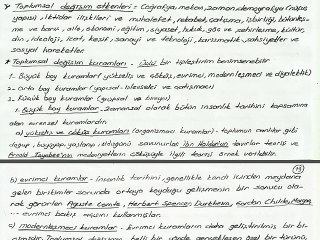 * Toplumsal değişim etkenleri = Coğrafya, mekan, zaman, demografya (nüfus
yapısı), iktidar ilişkileri ve muhalefet, rekabet, çatışma, işbirliği,
ve barış, aile, ekonomi, eğitim, siyaset, hukuk, göç ve şehirleşme, kültür,
din, ideoloji, icat, keşif, sanayi ve teknoloji, karizmatik şahsiyetler ve
sosyal hareketler
* Toplumsal değişim kuramları - Üçlü bir tipleştirim benimsenebilir
1. Büyük boy kuramlar (yükseliş ve çöküş, evrimci, modernleşmeci ve diyalektik)
2- Orta boy kuramlar (yapısal-işlevselci ve çatışmacı)
3. Küçük boy kuramlar (psikolojik ve bireyci)
1. Büyük boy kuramlar - zamansal olarak bütün insanlık tarihini kapsamına
alan kuramlardır.
a) yükseliş ve çöküş kuramları (organizmacı kuramlar) - toplumun canlılar gibi
doğup, büyüyüp, yaşlanıp, öldüğünü savunurlar İbn Haldun'un tavırlar teorisi ve
Arnold Toynbee'nin medeniyetlerin çöküşüyle ilgili teorisi örnek verilebilir.
b) evrimci kuramlar - insanlık tarihini, genellikle kendi içinden meydana
gelen birikimler sonunda ortaya koyduğu gelişmenin bir sonucu ola-
rak görürler Aguste Comte, Herbert Spencer, Durkheim, Gordon Childe, Morgan
... evrimci bakış açısını kullanmışlar.
c) modernleşmeci kuramlar - evrimci kuramların daha geliştirilmiş bir bi-